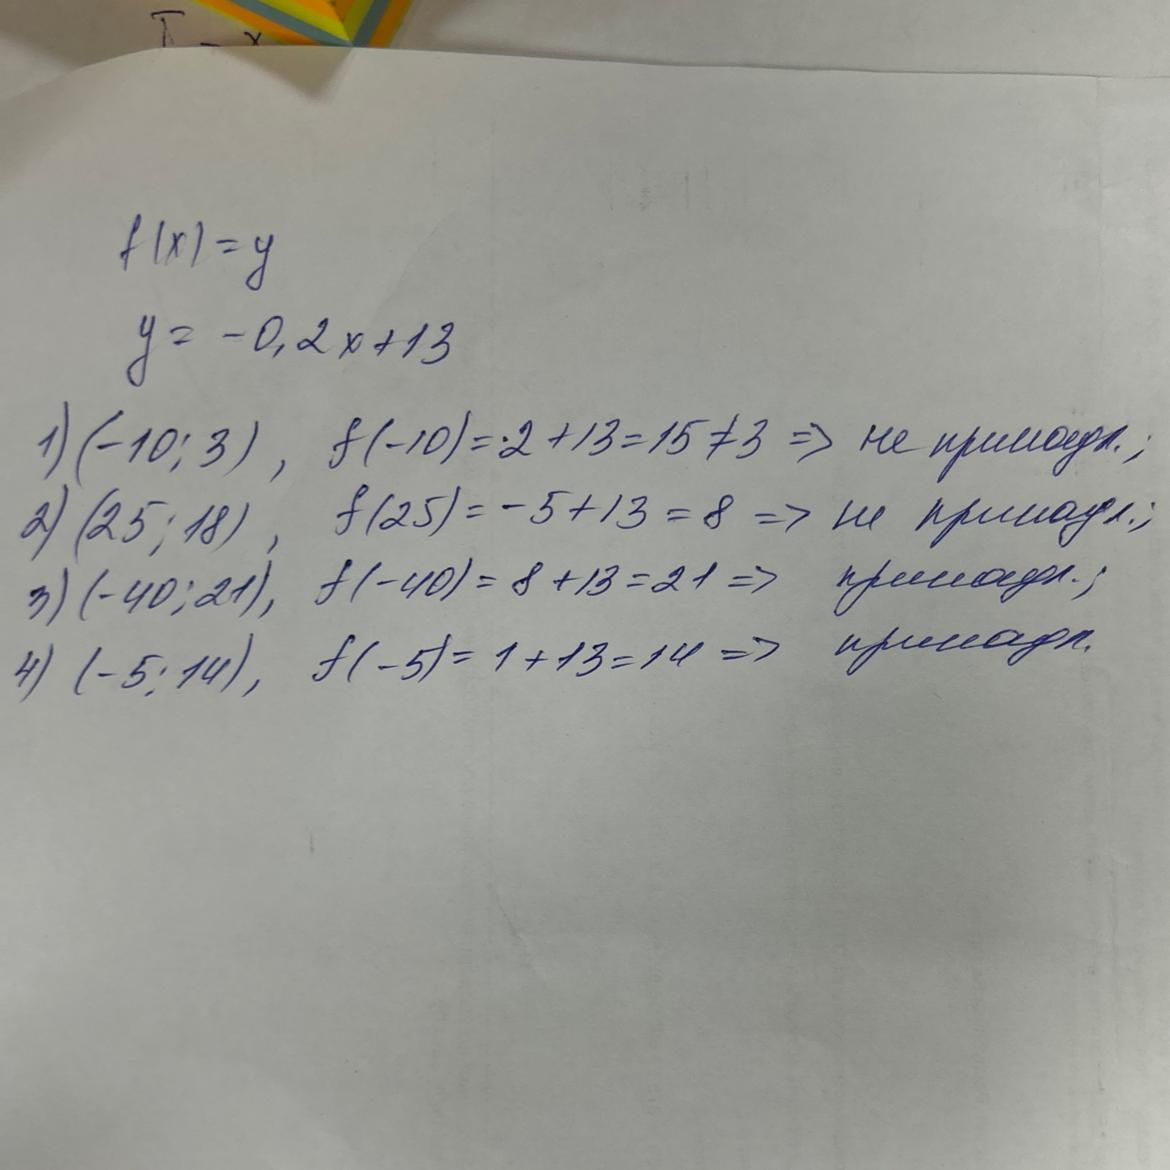 π - x
f(x) = y
y = -0,2x+13
1) (-10; 3), f(-10) = 2 + 13 = 15 ≠ 3 => не принадл.;
2) (25; 18), f(25) = -5 + 13 = 8 => не принадл.;
3) (-40; 21), f(-40) = 8 + 13 = 21 => принадл.;
4) (-5; 14), f(-5) = 1 + 13 = 14 => принадл.